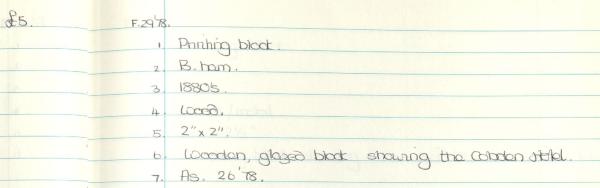 £5. F.29'78.
1. Printing block.
2. B.ham.
3. 1880's.
4. Wood.
5. 2" x 2".
6. Wooden, glazed block showing the Cobden Hotel.
7. As. 26'78.